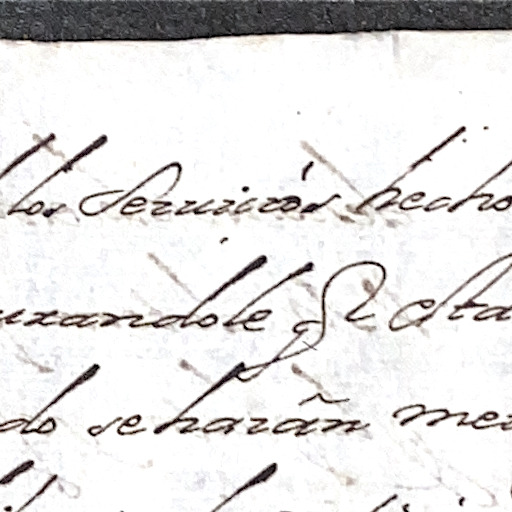 los servicios hecho
urandole qe esta
do se harán mer